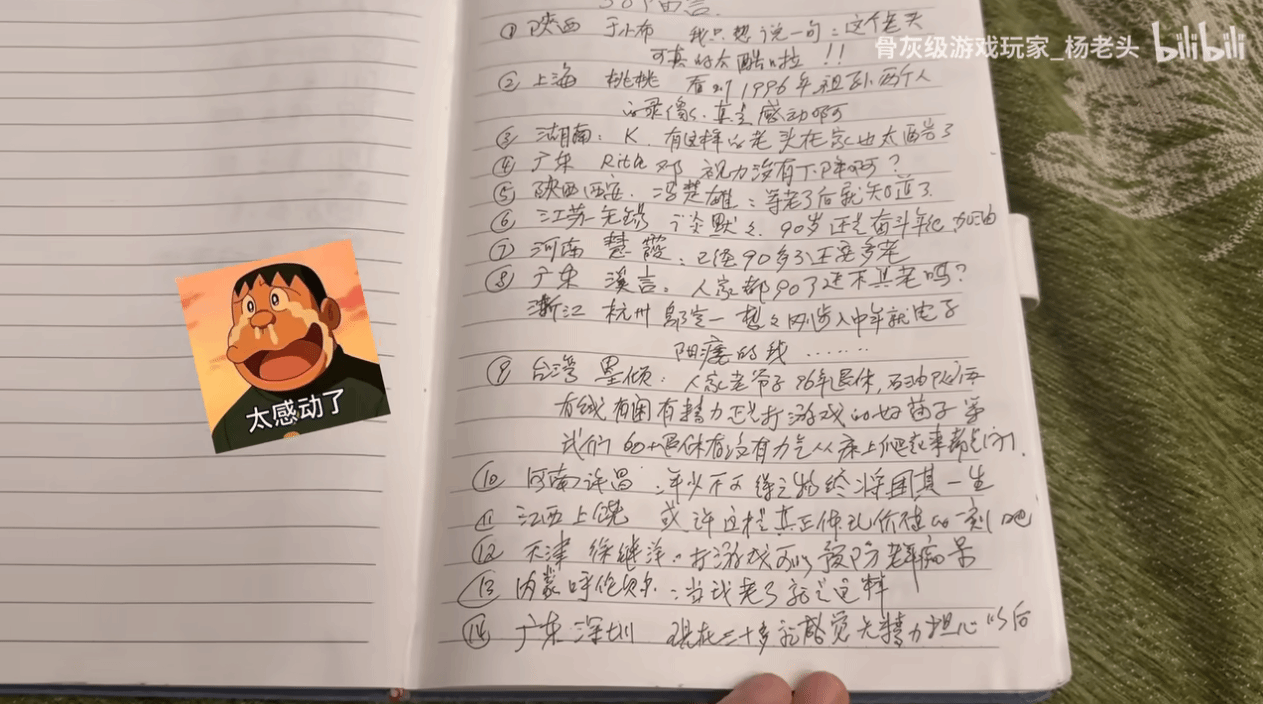 骨灰级游戏玩家_杨老头 bilibili
① 陕西 于小布 我只想说一句：这个老头
可真的太酷啦!!
② 上海 桃桃 看到1996年祖孙两个人
的录像，真是感动啊
③ 湖南：K. 有这样的老头在家也太酷了
④ 广东 Rita 邓 视力没有下降啊？
⑤ 陕西西安. 冯楚雄：等老了后就知道了
⑥ 江苏无锡 谈默文. 90岁还是奋斗年纪加油
⑦ 河南 慧霞：已经90多了还要多老
⑧ 广东 溪言。人家都90了还不算老吗？
浙江 杭州 一想到刚步入中年就电子
阳痿的我……
⑨ 台湾 墨倾：人家老爷子96年退休，
有钱有闲有精力正是打游戏的好苗子等
我们60+退休有没有力气从床上爬起来都是问.
⑩ 河南许昌：年少不可得之物终将困其一生
11 江西上饶 或许这是真正体现价值的一刻吧
12 天津 徐继洋：打游戏可以预防老年痴呆
13 内蒙呼伦贝尔：当我老了就是这样
14 广东深圳 现在三十多就感觉无精力担心以后
太感动了